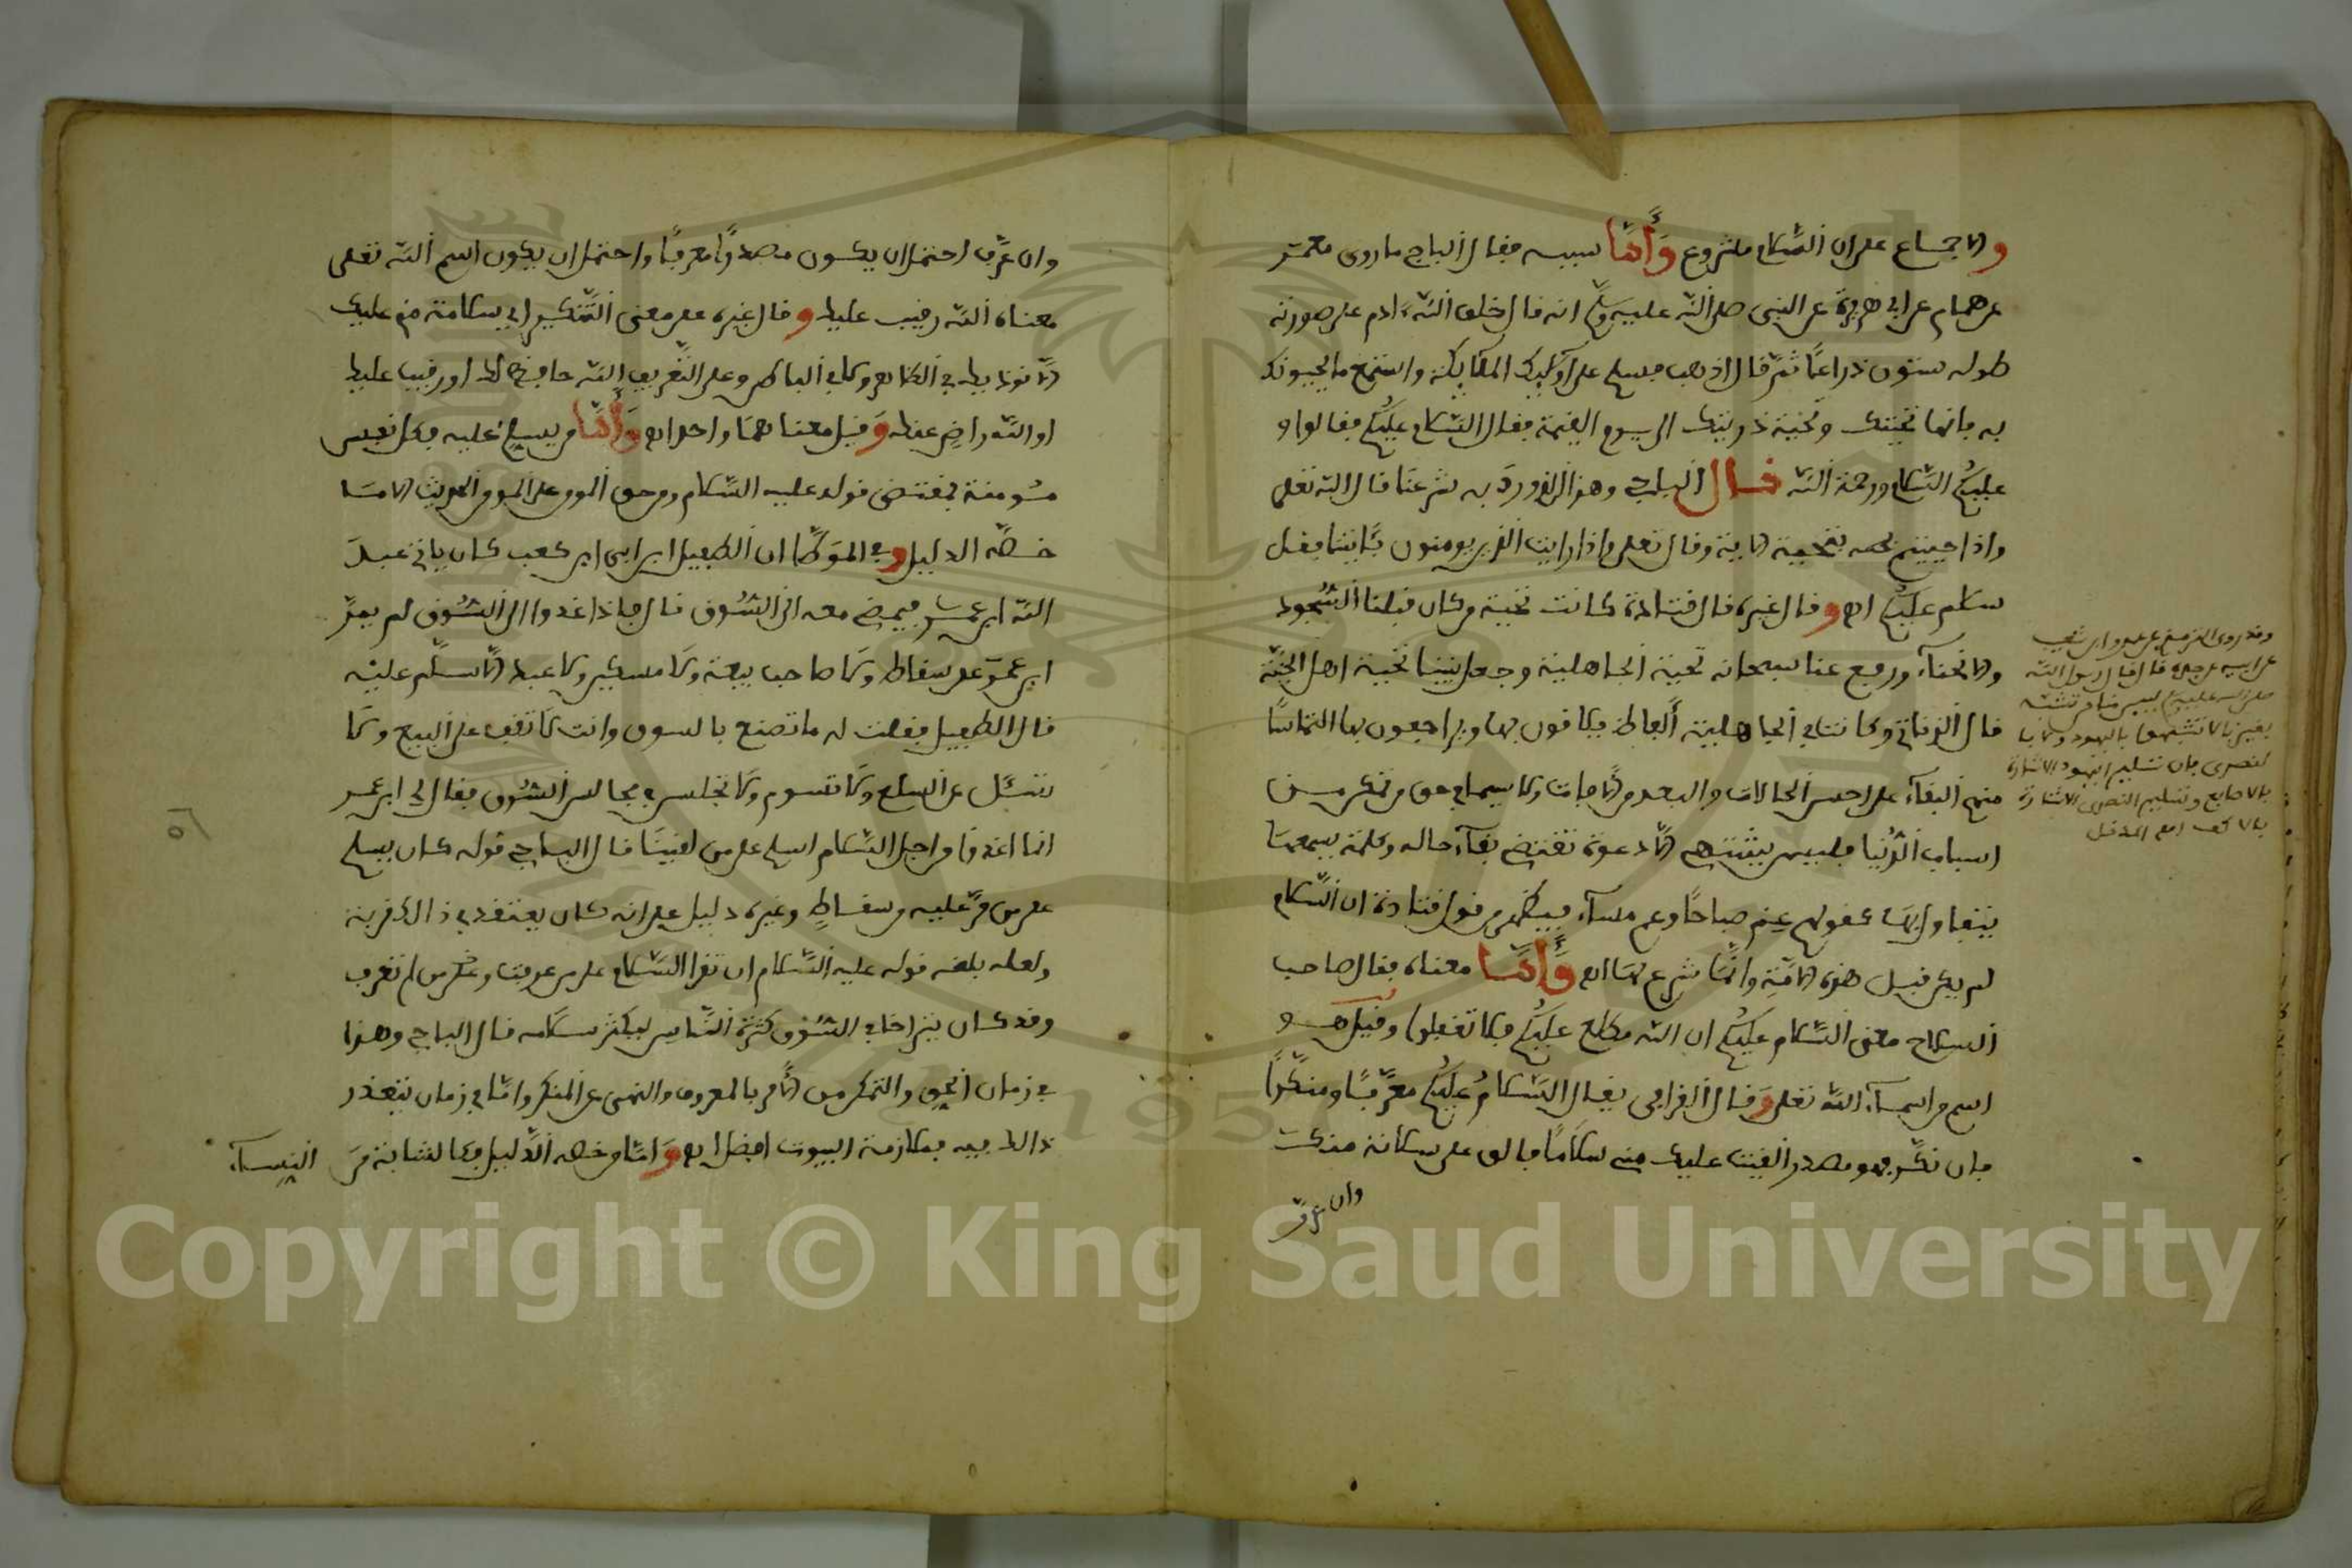 والاجماع على ان السلام مشروع وأما سببه فقال الباجي ما روى معمر
عن همام عن ابي هريرة عن النبي صلى الله عليه وسلم انه قال خلق الله ادم على صورته
طوله ستون ذراعا ثم قال اذهب فسلم على اولئك الملائكة واستمع ما يحيونك
به فانها تحيتك وتحية ذريتك الى يوم القيمة فقال السلام عليكم فقالوا و
عليكم السلام ورحمة الله قال الباجي وهذا الذي ورد به شرعنا قال الله تعلى
واذا حييتم بتحية الاية وقال تعلى واذا رايت الذين يومنون بئاياتنا فقل
سلام عليكم اه وقال غيره قال قتادة كانت تحية من كان قبلنا السجود
والانحناء ورفع عنا سبحانه تحية الجاهلية وجعل بيننا تحية اهل الجنة
قال الزناتي وكانت في الجاهلية ألفاظ يتلاقون بها ويراجعون بها التماسا
منهم البقاء على احسن الحالات والبعد من الافات ولا سيما في حق من تمكن من
اسباب الدنيا فليس يشتهي الا دعوة تقتضي بقاء حاله وكلمة يسمعها
يتفاول بها كقولهم عم صباحا وعم مساء فيظهر من قول قتادة ان السلام
لم يكن قبل هذه الامة وانما شرع لها اه وأما معناه فقال صاحب
السلاح معنى السلام عليكم ان الله مطلع عليكم فلا تغفلوا وقيل هو
اسم من اسماء الله تعلى وقال القرافي يقال السلام عليكم معرفا ومنكرا
فان نكر فهو مصدر القيت عليك مني سلاما فالق على سلامة منك
وان عرف
وقد روى الترمذي عن عمرو ابن شعيب
عن ابيه عن جده قال قال رسول الله
صلى الله عليه وسلم ليس منا من تشبه
بغيرنا لا تشبهوا باليهود ولا با
لنصرى فان تسليم اليهود الاشارة
بالاصابع وتسليم النصرى الاشارة
بالاكف
وان عرف احتمل ان يكون مصدرا معرفا واحتمل ان يكون اسم الله تعلى
معناه الله رقيب عليك وقال غيره معنى التنكير اي سلامة مني عليك
لا نوذيك في الظاهر ولا في الباطن وعلى التعريف الله حافظ لك او رقيب عليك
او الله راض عنك وقيل معناهما واحد اه وأما من يسلم عليه فكل نفس
مومنة بمقتضى قوله عليه السلام ومن حق المومن على المومن الحديث الا ما
خصه الدليل وفي الموطا ان الطفيل ابن ابي ابن كعب كان ياتي عبد
الله ابن عمر فيمضي معه الى السوق قال فاذا غدوا الى السوق لم يمر
ابن عمر على سقاط ولا صاحب بيعة ولا مسكين ولا عبد الا سلم عليه
قال الطفيل فقلت له ما تصنع بالسوق وانت لا تقف على البيع ولا
تسئل عن السلع ولا تسوم ولا تجلس في مجالس السوق فقال لي ابن عمر
انما اغدوا من اجل السلام اسلم على من لقينا قال الباجي قوله كان يسلم
على من مر عليه من سقاط وغيره دليل على انه كان يعتقد في ذالك قربة
ولعله بلغه قوله عليه السلام ان تقرا السلام على من عرفت وعلى من لم تعرف
وقد كان يتراخى في السوق كثرة الناس ليكثر سلامه قال الباجي وهذا
في زمان الحق والتمكن من الامر بالمعروف والنهي عن المنكر واما في زمان يتعذر
ذالك فيه فملازمة البيوت افضل اه وأما من خصه الدليل فكالشابة من النساء